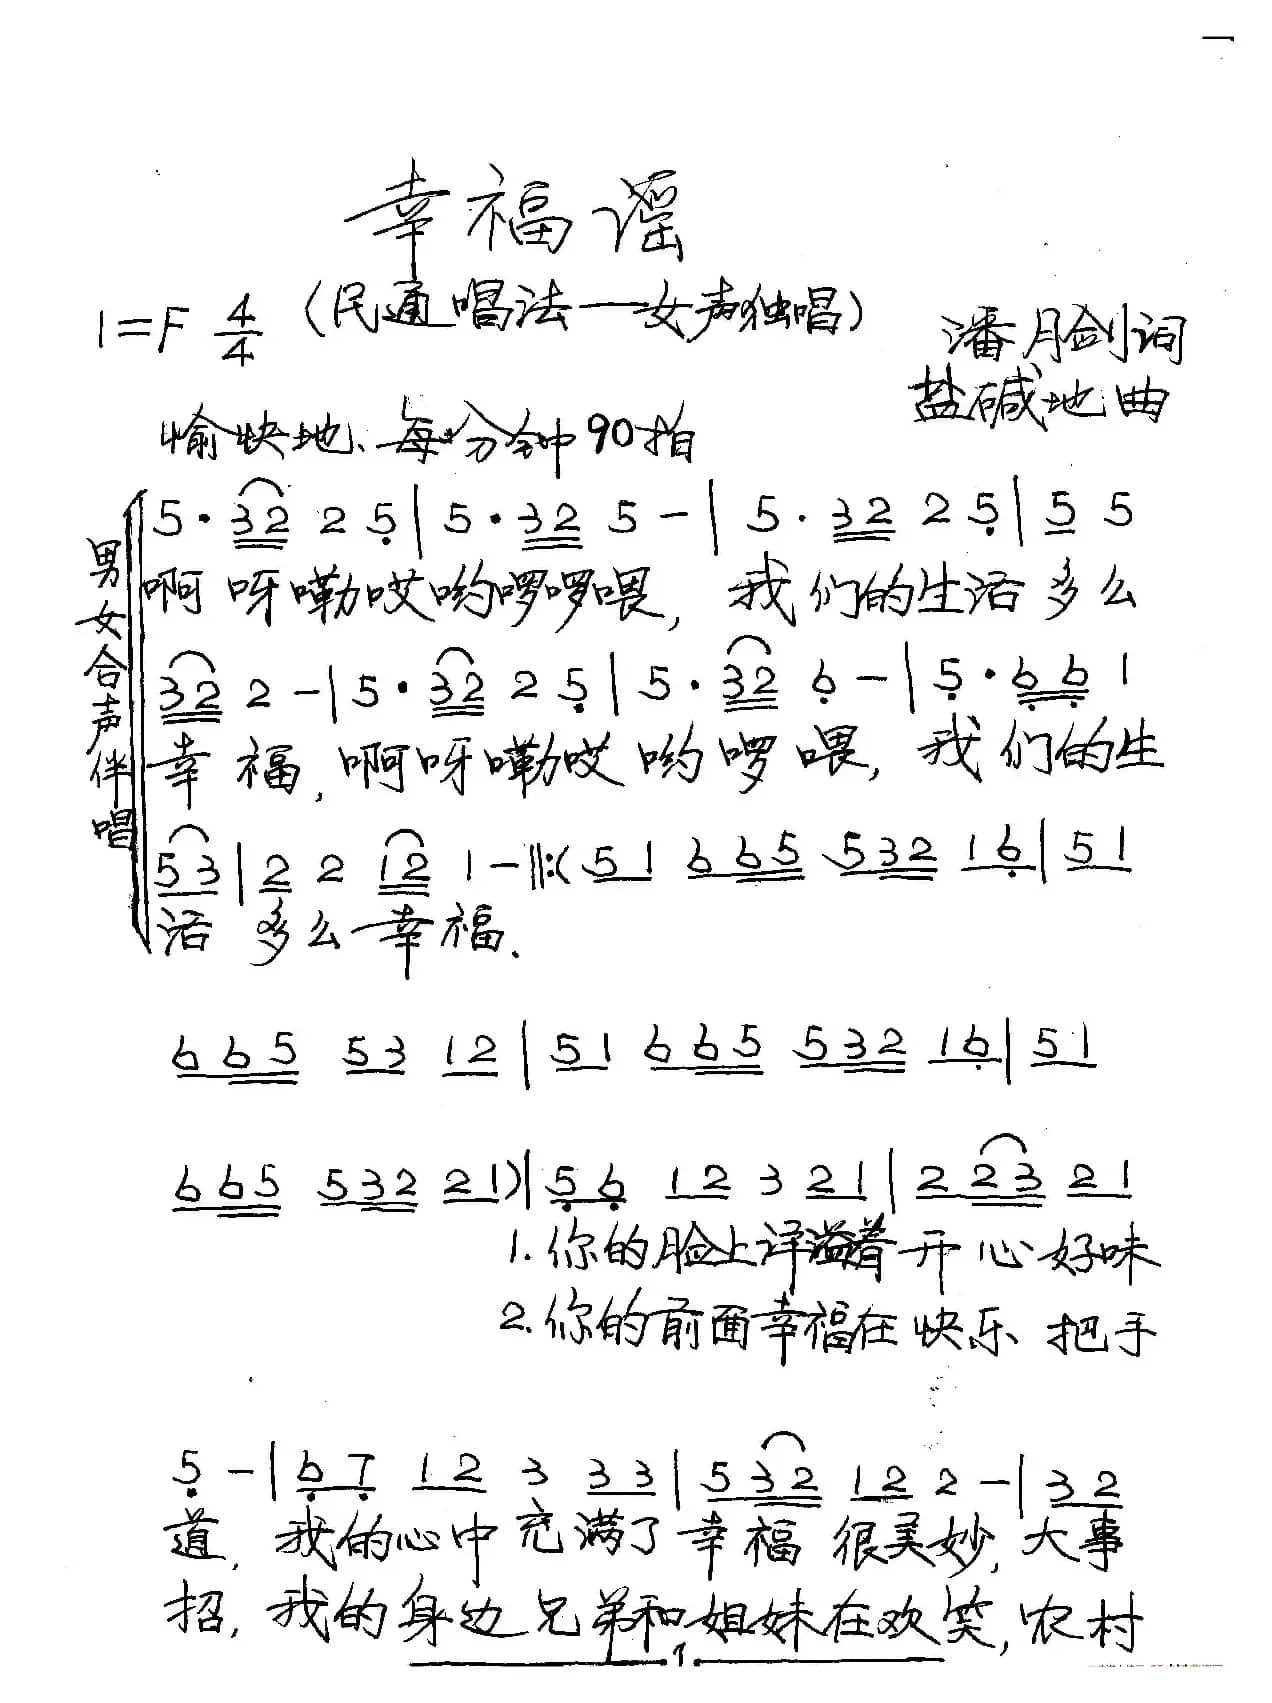 幸福谣
(民通唱法——女声独唱)
1=F 4/4
潘月剑词
盐碱地曲
愉快地、每分钟90拍
男女合声伴唱
5·32 2 5|5·32 5 -|5·32 2 5|5 5
啊呀嘞哎哟啰啰喂,我们的生活多么
32 2 -|5·32 2 5|5·32 6 -|5·66 1
幸福,啊呀嘞哎哟啰喂,我们的生
53|2 2 12 1 -‖:(51 665 532 16|51
活多么幸福.
665 53 12|51 665 532 16|51
665 532 21)|56 12 3 21|2 23 21
1.你的脸上洋溢着开心好味
2.你的前面幸福在快乐把手
5 -|67 12 3 33|532 12 2 -|32
道,我的心中充满了幸福很美妙,大事
招,我的身边兄弟和姐妹在欢笑,农村
1